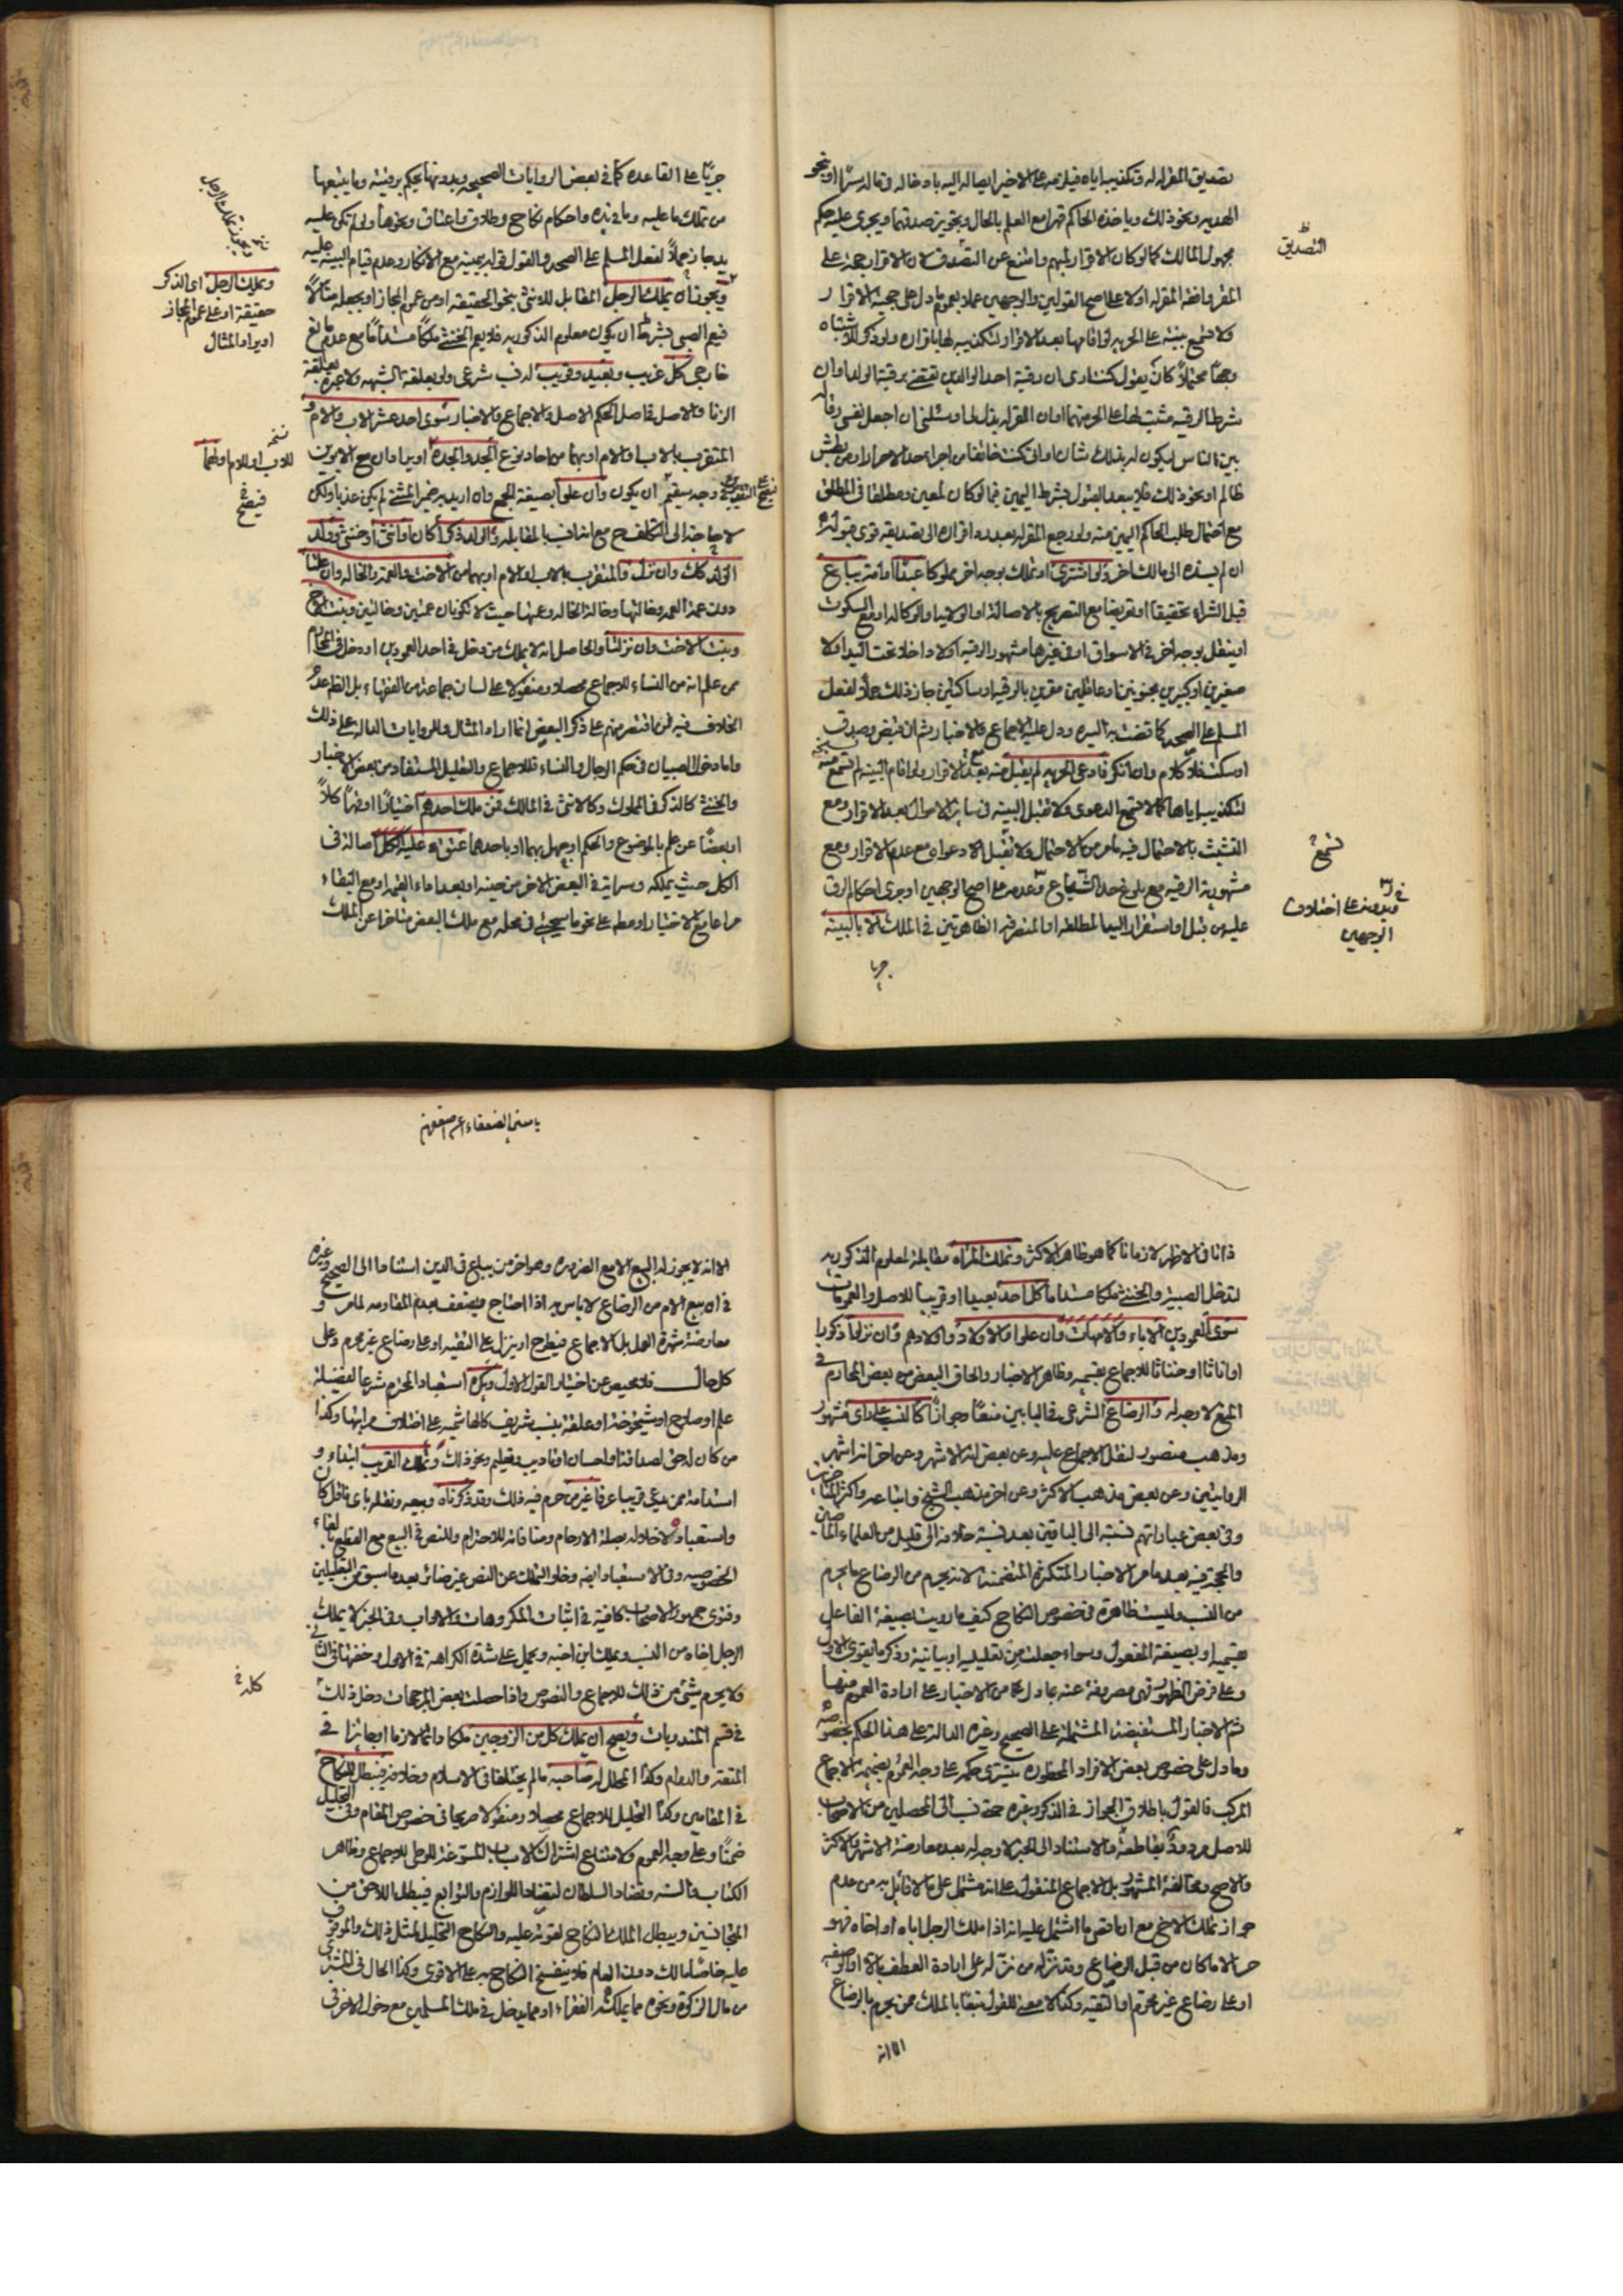 تصديق المقر له له وتكذيبه اياه فيلزمه على الاخير ايصاله اليه بادخاله في ماله سرا او نحو
الهديه ونحو ذلك وياخذه الحاكم قهرا مع العلم بالحال وتجويز صدقهما ويجرى عليه حكم
مجهول المالك كما لو كان الاقرار لمبهم وامتنع عن التصديق لان الاقرار حجة على
المقر وافقه المقر له او لا على اصح القولين والوجهين عملا بعموم ما دل على حجية الاقرار
ولا تسمع بينة على الحرية لو اقامها بعد الاقرار لتكذيبه لها باقراره ولو ذكر للاشتباه
وجها محتملا كان يقول كنت ارى ان رقية احد الوالدين تقتضي رقية الولد او ان
شرط الرقية مثبت لها على الحر منهما او ان المقر له بذل لي او سئلني ان اجعل نفسي رقا له
بين الناس ليكون له بذلك شان او اني كنت خائفا من اجراء حد الاحرار او من بطش
ظالم او نحو ذلك فلا يبعد القبول بشرط اليمين فيما لو كان لمعين ومطلقا في المطلق
مع احتمال طلب الحاكم اليمين منه ولو رجع المقر له بعد رد اقراره الى تصديقه قوى قبوله
ان لم يسنده الى مالك اخر ولو اشترى او تملك بوجه اخر مملوكا عبدا او امة يباع
قبل الشراء تحقيقا او تعريضا مع التصريح بالاصالة او الولاية او الوكالة او مع السكوت
او ينقل بوجه اخر في الاسواق او في غيرها مشهور الرقيه او لا داخلا تحت اليد او لا
صغيرين او كبيرين مجنونين او عاقلين مقرين بالرقيه او ساكتين جاز ذلك حملا لفعل
المسلم على الصحه كما قضت به السيره ودل عليه الاجماع والاخبار
او سكت فلا كلام وان انكر فادعى الحرية لم يقبل منه بعد الاقرار ولو اقام البينه لم تسمع منه
لتكذيبه اياها كما لا تسمع الدعوى ولا تقبل البينه في سائر الاحوال بعد الاقرار ومع
التشبث بالاحتمال فيه ما مر من الاحتمال ولا تقبل الا دعواه مع عدم الاقرار ومع
مشهورية الرقيه مع بلوغ حد الشياع وعدمه على اصح الوجهين او جرى احكام الرق
عليه من قبل او استقرار اليد المطلقه او المتصرفه الظاهرتين في الملك الا بالبينه
جريا
التصديق
تسمع
وبدونه على اختلاف
الوجهين
جريا على القاعده كما في بعض الروايات الصحيحه وبدونها يحكم برقيته وما يتبعها
من تملك ما عليه وما في يده واحكام نكاح وطلاق واعتاق ونحوها ولو لم تكن عليه
يد جاز حملا لفعل المسلم على الصحه والقول قوله بيمينه مع الانكار وعدم قيام البينه عليه
ويجوز ان يملك الرجل المقابل للانثى بنحو الحقيقه او من عموم المجاز او بجعله مثالا
فيعم الصبي بشرط ان يكون معلوم الذكوريه فلا يعم الخنثى ملكا مستداما مع عدم مانع
خارجي كل غريب وبعيد وقريب له في نسب شرعي ولو بعلقة الشبهه ولا عبرة بعلقة
الزنا والاصل فاصل الحكم الاصل والاجماع والاخبار سوى احد عشر الاب والام و
المتقرب بالاب والام او بهما من احاد نوع الجد والجدة
وجه سقيم ان يكون وان علوا بصيغة الجمع وان اريد به ضمير المثنى لم يكن عذبا ولكن
لا حاجة الى التكلف مع اتصافه بالمقابله والولد ذكرا كان او انثى او خنثى وولد
الولد كك وان نزل والمتقرب بالاب او الام او بهما من الاخت والعمة والخاله وان علتا
دون عمة العمه وخالتها وخالة الخاله وعمتها حيث لا تكونان عمتين وخالتين وبنت الاخ
وبنت الاخت وان نزلتا والحاصل انه لا يملك من دخل في احد العمودين او دخل في المحارم
ممن علم انه من النساء للاجماع محصلا ومنقولا على لسان جماعة من الفقهاء بل الظ عدم
الخلاف فيه فمن اقتصر منهم على ذكر البعض انما اراد المثال وللروايات الداله على ذلك
واما دخول الصبيان في حكم الرجال والنساء فللاجماع والتعليل المستفاد من بعض الاخبار
والخنثى كالذكر في المملوك وكالانثى في المالك فمن ملك احدهم اختيارا او قهرا كلا
او بعضا عن علم بالموضوع والحكم او جهل بهما او باحدهما عتق عليه الكل اصالة في
الكل حيث يملكه وسراية في البعض الاخر من حينه او بعد اداء القيمه او مع البقاء
مراعا مع الاختيار او مطلقا على نحو ما سيجئ في محله مع ملك البعض متاخرا عن الملك
وتملك الرجل اى الذكر
حقيقة او على عموم المجاز
او يراد المثال
نسخه
للاب او للام او لهما
فيصح
ذاتا في الاظهر لا زمانا كما هو ظاهر الاكثر وتملك المراة مقابلة لمعلوم الذكوريه
لتدخل الصبية والخنثى ملكا مستداما كل احد بعيدا او قريبا للاصل والعمومات
سوى العمودين الاباء والامهات وان علوا والاولاد واولادهم وان نزلوا ذكورا
او اناثا او خناثا للاجماع بقسميه وظاهر الاخبار والحاق البعض به بعض المحارم في
المنع لا وجه له والرضاع الشرعى في البابين منعا وجوازا كالنسب على راى مشهور
ومذهب منصور لنقل الاجماع عليه وعن بعض انه الاشهر وعن اخر انه اشهر
الروايتين وعن بعض مذهب الاكثر وعن اخر مذهب الشيخ واتباعه واكثر المتاخرين
وفي بعض عباراتهم نسبته الى الباقين بعد نسبة خلافه الى قليل من العلماء الماضين
والحجة فيه بعد ما مر الاخبار المتكثرة المتضمنة لانه يحرم من الرضاع ما يحرم
من النسب وليست ظاهرة في خصوص النكاح كيف ما رويت بصيغة الفاعل
بقسميه او بصيغة المفعول وسواء جعلت من تعليليه او بيانية وذكر ما يقوى الاول
وعلى فرض الظهور فهي مصروفة عنه بما دل من الاخبار على ارادة العموم منها
ثم الاخبار المستفيضة المشتملة على الصحيح وغيره الدالة على هذا الحكم بخصوصه
وما دل على خصوص بعض الافراد المحظوره يسرى حكمه على وجه العموم بضميمة الاجماع
المركب فالقول باطلاق الجواز في الذكر وغيره حتى نسب الى المحصلين من الاصحاب
للاصل مردود بقاطعه والاستناد الى الخبر لا وجه له بعد معارضة الاشهر والاكثر
والاصح ومخالفة المشهور بل الاجماع المنقول على انه مشتمل على ما لا قائل به من عدم
جواز تملك الاخ مع ان اقصى ما اشتمل عليه انه اذا ملك الرجل اباه او اخاه فهو
حر الا ما كان من قبل الرضاع وقد نزله من نزله على ارادة العطف بالا او الوصفيه
او على رضاع غير محرم او التقيه وكذا لا معنى للقول تبعا بالملك ممن يحرم بالرضاع
الا انه
الا انه لا يجوز له البيع الا مع الضروره وهو اخر من يباع في الدين استنادا الى الصحيح وغيره
في ان بيع الام من الرضاع لا باس به اذا احتاج فيضعف بعدم المقاومه لما مر و
معارضة شهرة العمل بل الاجماع فيطرح او ينزل على التقيه او على رضاع غير محرم وعلى
كل حال فلا محيص عن اختيار القول الاول ويكره استعباد المحترم شرعا لفضيلة
علم او صلاح او شيخوخة او علقة نسب شريف كالهاشميه على اختلاف مراتبها وكذا
من كان له حق لصداقة او احسان او تاديب وتعليم ونحو ذلك وتملك القريب ابتداء و
استدامة ممن يدعى قريبا عرفا غير من حرم فيه ذلك وقد ذكرناه وبيعه ونقله باى ناقل كان
واستعباده لاخلاله بصلة الارحام ومنافاته للاحترام وللنص في البيع مع القطع بالغاء
الخصوصيه وفي الاستعباد ايضا وخلو التملك عن النص غير ضائر بعد ما سبق من التعليلين
وفتوى جمهور الاصحاب كافية في اثبات المكروهات والاداب وفي الخبر لا يملك
الرجل اخاه من النسب ويملك ابن اخيه ويحمل على شدة الكراهة في الاول وخفتها في الثاني
ولا يحرم شئ من ذلك للاجماع والنصوص واذا حصلت بعض المرجحات دخل ذلك
في قسم المندوبات ويصح ان يملك كل من الزوجين ملكا دائما لازما او جائزا في
المتعة والدوام وكذا المحلل له صاحبه ما لم يختلفا في الاسلام وخلافه فيبطل النكاح
في المقامين وكذا التحليل للاجماع محصلا ومنقولا صريحا في خصوص المقام وفي التحليل
ضمنا وعلى وجه العموم ولامتناع اشتراك الاسباب المسوغة للوطى للاجماع وظاهر
الكتاب والسنه وتضاد السلطان لتضاد اللوازم والتوابع فيبطل اللاحق من
المتجانسين ويبطل الملك النكاح لقوته عليه والنكاح التحليل لمثل ذلك والموقوف
عليه خاصا مالك دون العام فلا ينفسخ النكاح به على الاقوى وكذا الحال في المشترى
من مال الزكوة ونحوه مما يملكه الفقراء او مما يدخل في ملك المسلمين مع دخول الاخر في
كله